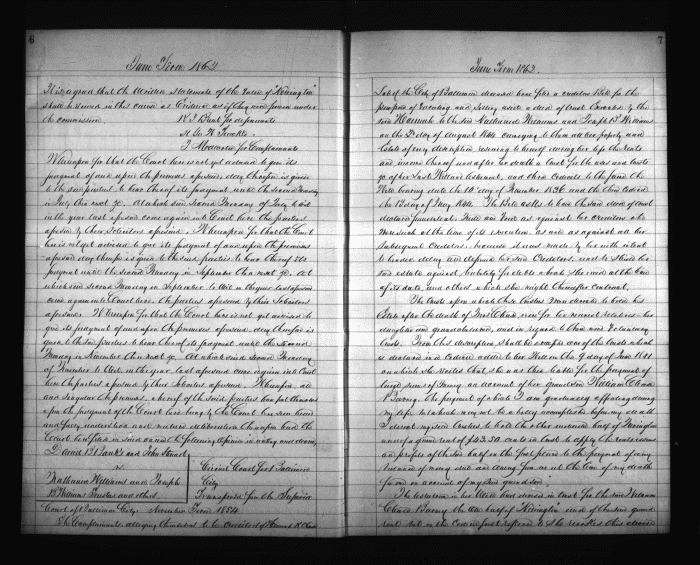 6
June Term 1862
It is agreed that the written statements of the value of "Kerrington"
shall be used in this cause as Evidence as if they were proven under
the commission.
for defendants
for Complainants
Whereupon for that the Court here is not yet advised to give its
judgment of and upon the premises aforesaid, day therefor is given
to the said parties to hear thereof its judgment until the second Tuesday
in July then next &c. At which said second Tuesday of July to wit
in the year last aforesaid come again into Court here the parties
aforesaid by their Solicitors aforesaid. Whereupon for that the Court
here is not yet advised to give its judgment of and upon the premises
aforesaid day therefor is given to the said parties to hear thereof its
judgment until the second Tuesday in September then next &c. At
which said second Tuesday in September to wit in the year last aforesaid
come again into Court here the parties aforesaid by their Solicitors
aforesaid. Whereupon for that the Court here is not yet advised to
give its judgment of and upon the premises aforesaid day therefor is
given to the said parties to hear thereof its judgment until the second
Tuesday in November then next &c. At which said second Tuesday
of November to wit in the year last aforesaid come again into Court
here the parties aforesaid by their Solicitors aforesaid. Whereupon, all
and singular the premises whereof the said parties have put themselves
upon the judgment of the Court here being by the Court here seen heard
and fully understood and mature deliberation thereupon had the
Court here files in said cause the following opinion in writing
David B Banks and John Stuart
vs.
Nathaniel Williams and Joseph
B Williams Trustees and others
Circuit Court for Baltimore
City
Transferred from the Superior
Court of Baltimore City: November Term 1854
The Complainants alleging themselves to be creditors of Hannah K Chase
7
June Term 1862.
Late of the City of Baltimore deceased have filed a creditors Bill for the
purpose of vacating and setting aside a deed of trust executed by the
said Hannah to the said Nathaniel Williams and Joseph B Williams
on the 2d day of August 1844 conveying to them all her property and
Estate of every description reserving to herself during her life the rents
and
go after her Last Will and testament, and their Creditors to the
Bill bearing date the 10th day of December 1836 and the other dated
the 13 day of Jany 1844. The Bill asks to have the said deed of trust
declared fraudulent null and void as against her creditors who
were such at the time of its execution, as well as against all her
subsequent Creditors; because it was made by her with intent
to hinder, delay and defraud her said Creditors, and to shield her
said estate against liability for debts which she owed at the time
of its date, and others which she might thereafter contract.
The trusts upon which these Trustees were directed to hold his
Estate after the death of Mrs Chase were for her nearest relations her
daughter and grandchildren, and in regard to them were Voluntary
trusts. From this description shall be excepted one of the trusts which
is declared in a Codicil added to her Will on the 9 day of June 1841
in which she recites that she was then liable for the payment of
large sums of money on account of her grandson William Chase
Barney, the payment of which I am
my life but which may not be wholly accomplished before my death
I direct my said trustees to hold the other undivided half of Kerrington
under a ground rent of $43.50 and in trust to apply the rents issues
and profits of the said half in the first place to the payment of any
thousand of money due and owing from me at the time of my death
for or on account of my said grandson".
The testatrix in her Will had devised in trust for the said William
Chase Barney the other half of Kerrington and of the same ground
rent but in the Codicil just referred to she revokes this devise